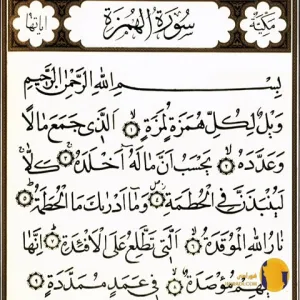 سُورَةُ الْهُمَزَةِ
مَكِّيَّة
اياتها
بِسْمِ اللَّهِ الرَّحْمَٰنِ الرَّحِيمِ
وَيْلٌ لِكُلِّ هُمَزَةٍ لُمَزَةٍ ١ الَّذِي جَمَعَ مَالًا
وَعَدَّدَهُ ٢ يَحْسَبُ أَنَّ مَالَهُ أَخْلَدَهُ ٣ كَلَّا
لَيُنْبَذَنَّ فِي الْحُطَمَةِ ٤ وَمَا أَدْرَاكَ مَا الْحُطَمَةُ ٥
نَارُ اللَّهِ الْمُوقَدَةُ ٦ الَّتِي تَطَّلِعُ عَلَى الْأَفْئِدَةِ ٧ إِنَّهَا
عَلَيْهِمْ مُؤْصَدَةٌ ٨ فِي عَمَدٍ مُمَدَّدَةٍ ٩